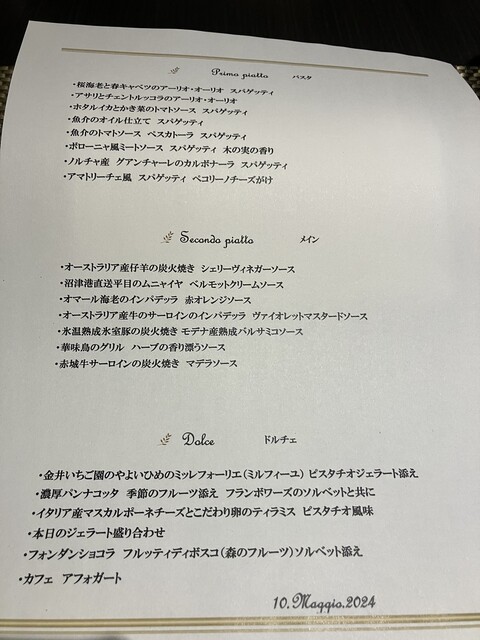 Primo piatto パスタ
・桜海老と春キャベツのアーリオ・オーリオ スパゲッティ
・アサリとチェントルッコラのアーリオ・オーリオ
・ホタルイカとかき菜のトマトソース スパゲッティ
・魚介のオイル仕立て スパゲッティ
・魚介のトマトソース ペスカトーラ スパゲッティ
・ボローニャ風ミートソース スパゲッティ 木の実の香り
・ノルチャ産 グアンチャーレのカルボナーラ スパゲッティ
・アマトリーチェ風 スパゲッティ ペコリーノチーズがけ
Secondo piatto メイン
・オーストラリア産仔羊の炭火焼き シェリーヴィネガーソース
・沼津港直送平目のムニャイヤ ベルモットクリームソース
・オマール海老のインパデッラ 赤オレンジソース
・オーストラリア産牛のサーロインのインパデッラ ヴァイオレットマスタードソース
・氷温熟成氷室豚の炭火焼き モデナ産熟成バルサミコソース
・華味鳥のグリル ハーブの香り漂うソース
・赤城牛サーロインの炭火焼き マデラソース
Dolce ドルチェ
・金井いちご園のやよいひめのミッレフォーリエ(ミルフィーユ) ピスタチオジェラート添え
・濃厚パンナコッタ 季節のフルーツ添え フランボワーズのソルベットと共に
・イタリア産マスカルポーネチーズとこだわり卵のティラミス ピスタチオ風味
・本日のジェラート盛り合わせ
・フォンダンショコラ フルッティディボスコ(森のフルーツ)ソルベット添え
・カフェ アフォガート
10.Maggio.2024